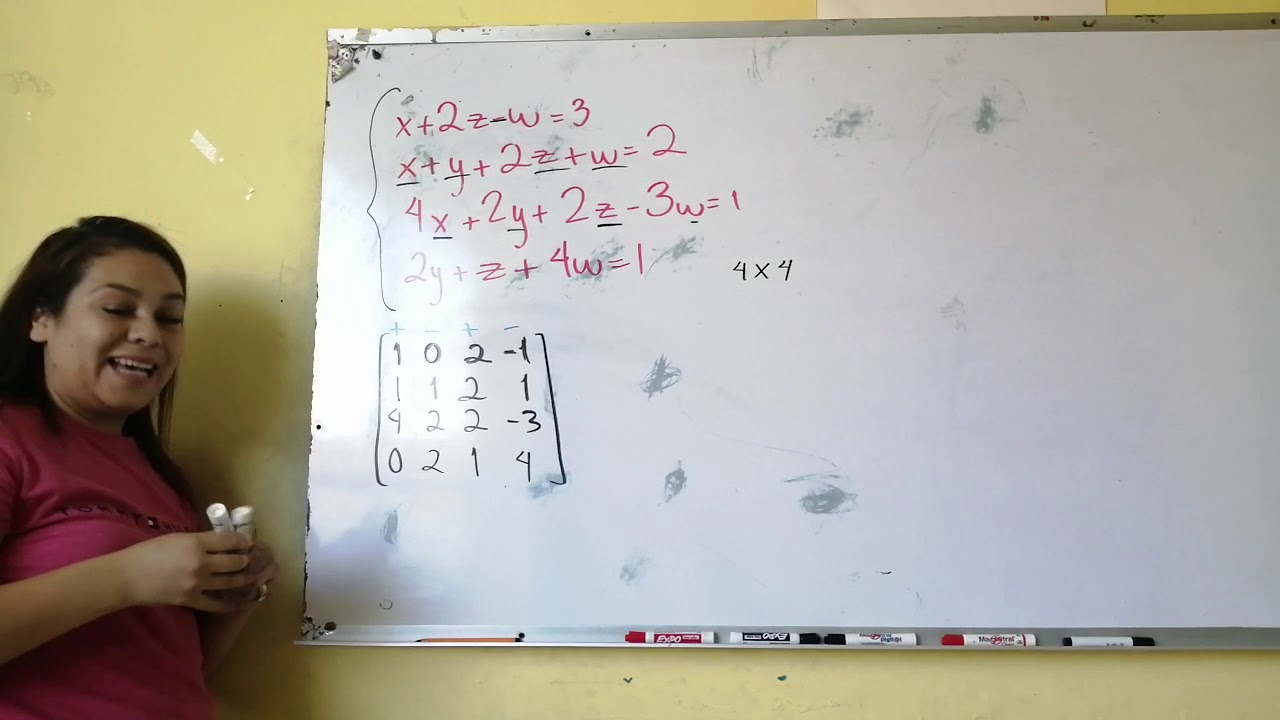 x+2z-w=3
x+y+2z+w=2
4x+2y+2z-3w=1
2y+z+4w=1
4x4
+ - + -
1 0 2 -1
1 1 2 1
4 2 2 -3
0 2 1 4
EXPO
EXPO
Magistral